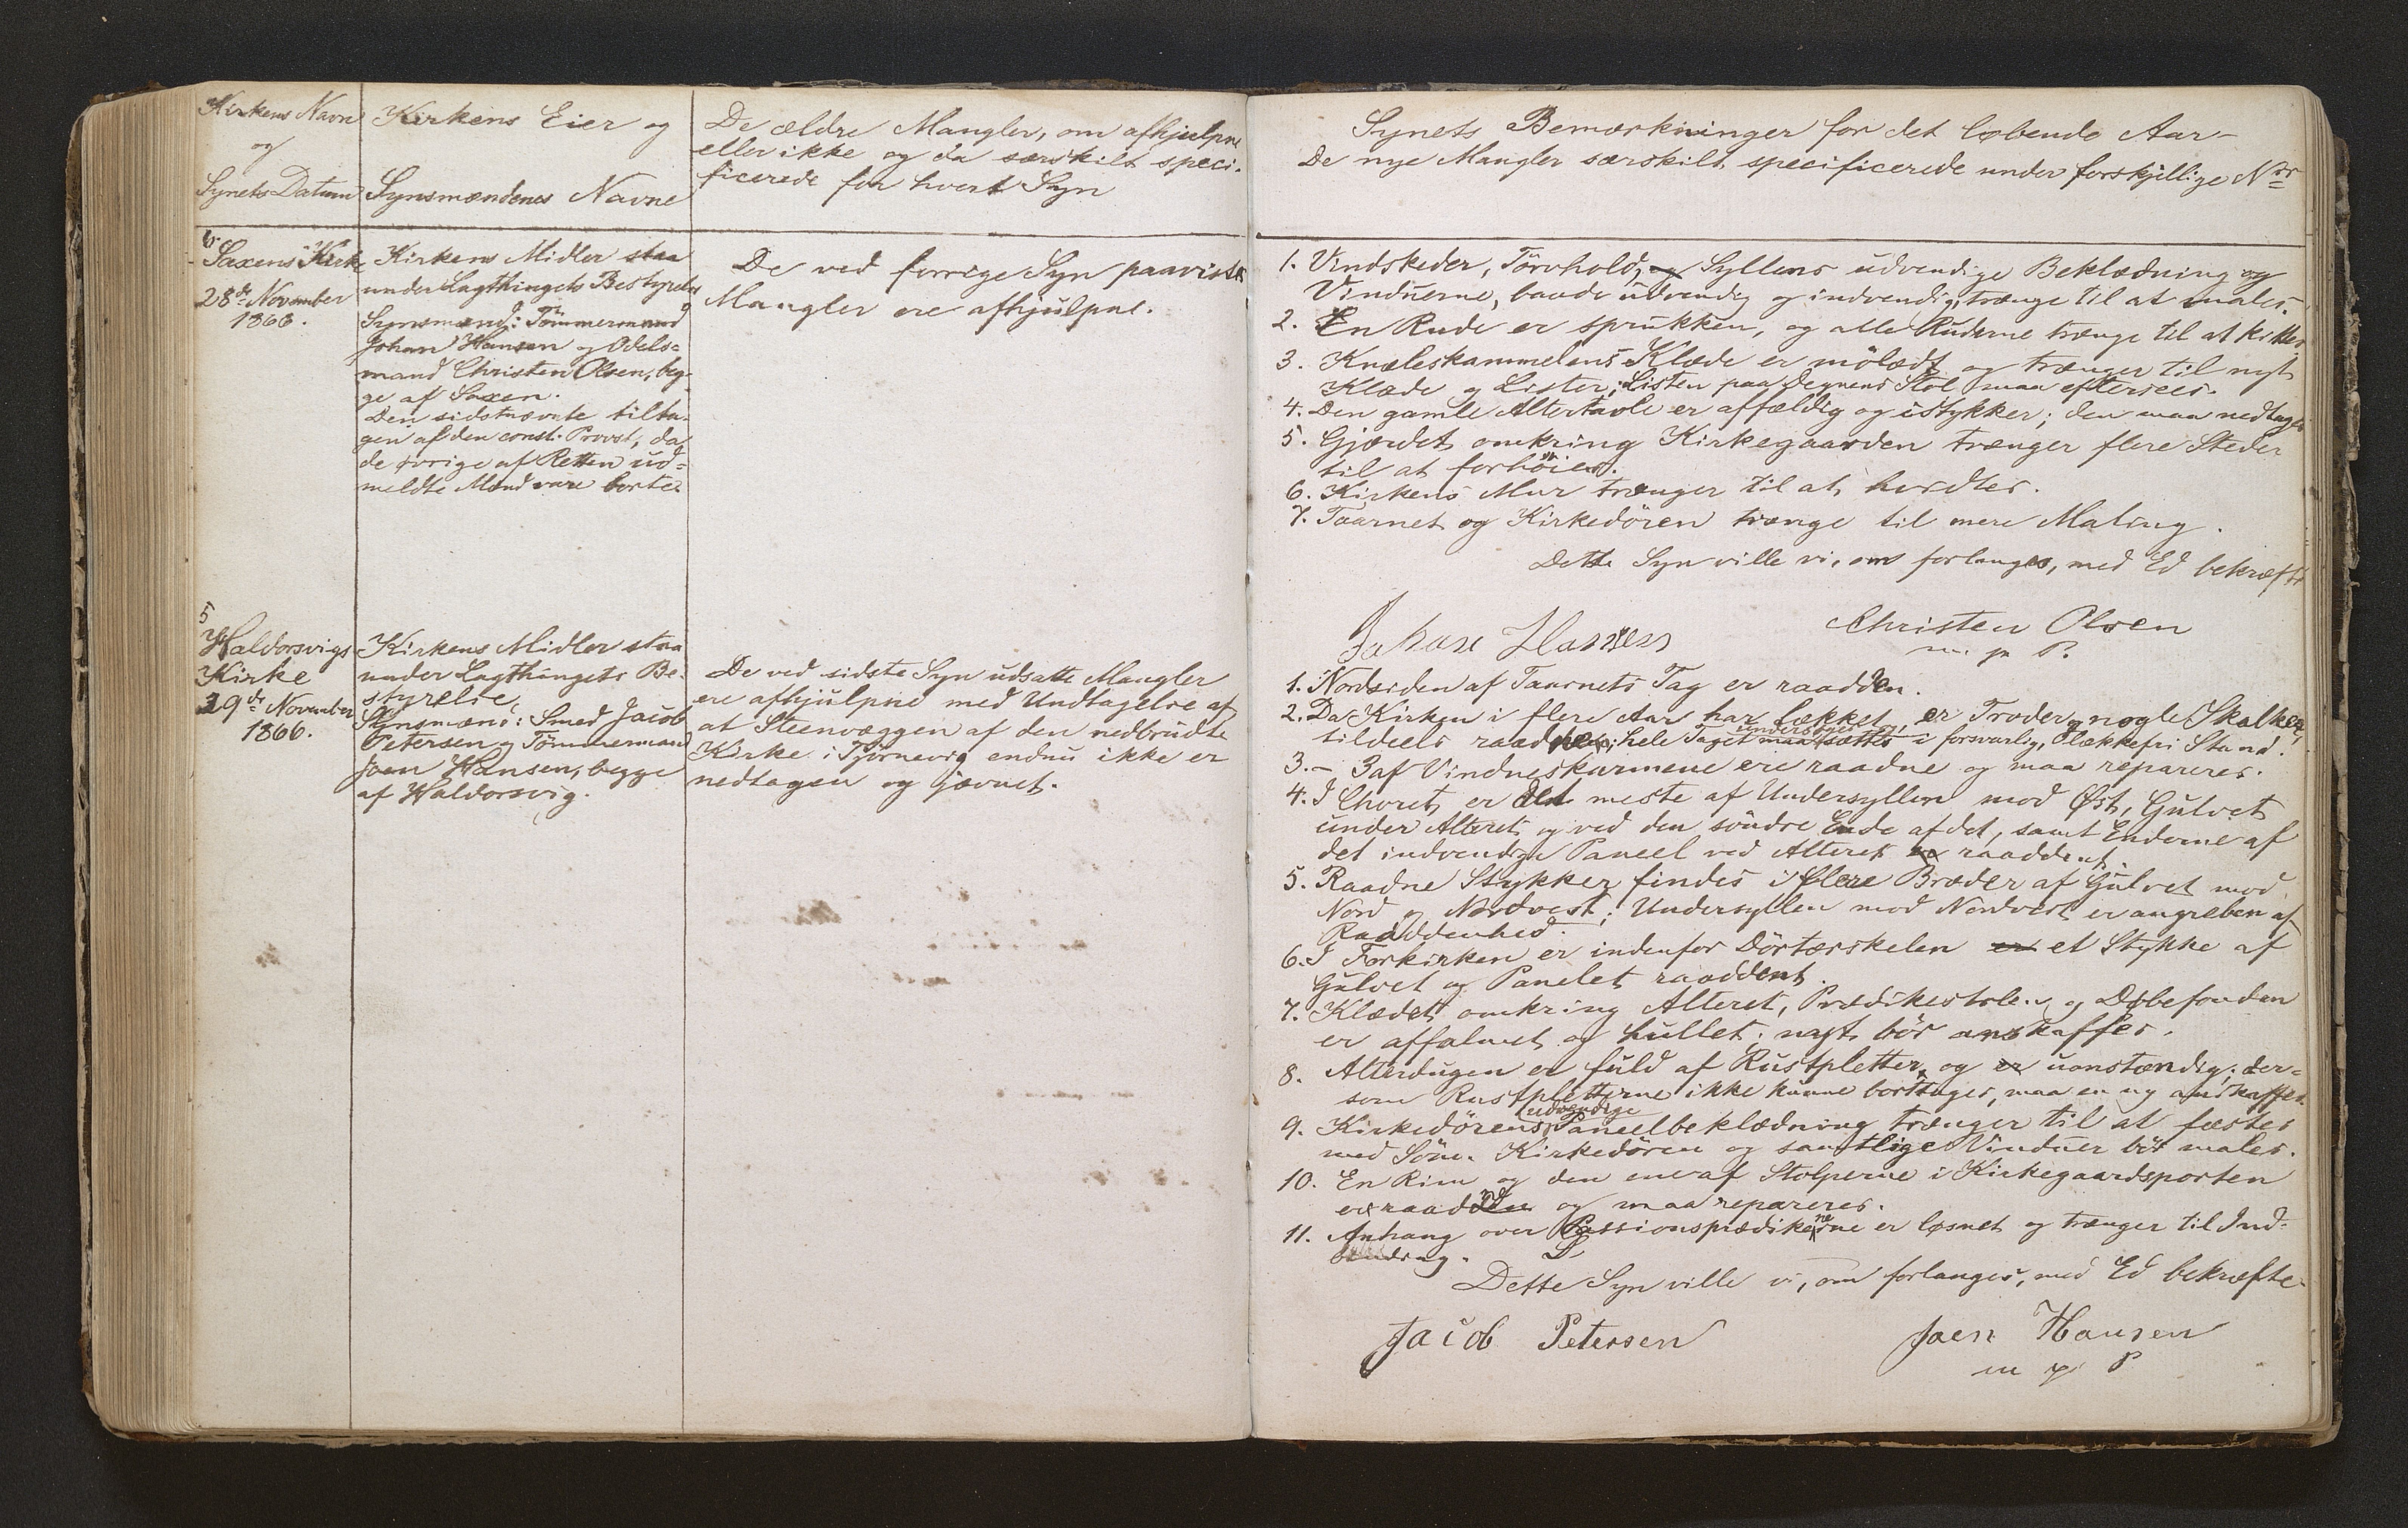 Kirkens Navn
og
Synets Datum
Kirkens Eier og
Synsmændenes Navne
De ældre Mangler, om afhjulpne
eller ikke og da særskilt speci-
ficerede for hvert Syn
6
Saxens Kirke
28de November
1866.
Kirkens Midler staa
under Lagthingets Bestyrelse
Synsmænd: Tömmermand
Johan Hansen og Odels=
mand Christen Olsen, beg-
ge af Saxen.
Den sidstnævnte tilta-
gen af den const. Provst, da
de övrige af Retten ud=
meldte Mænd vare borte.
De ved forrige Syn paaviste
Mangler ere afhjulpne.
5
Haldorsvigs
Kirke
29de November
1866.
Kirkens Midler staa
under Lagthingets Be-
styrelse,
Synsmænd: Smed Jacob
Petersen og Tömmermand
Joen Hansen, begge
af Haldorsvig.
De ved sidste Syn udsatte Mangler
ere afhjulpne med Undtagelse af
at Steenvæggen af den nedbrudte
Kirke i Tjörnevig endnu ikke er
nedtagen og jævnet.
Synets Bemærkninger for det løbende Aar-
De nye Mangler særskilt specificerede under forskjellige Nor
1. Vindskeder, Törvhold, og Syllens udvendige Beklædning og
Vinduerne, baade udvendig og indvendig, trænge til at males.
2. En Rude er sprukken, og alle Ruderne trænge til at kittes.
3. Knæleskammelens Klæde er mölædt og trænger til nyt
Klæde og Lister; Listen paa Degnens Stol maa eftersees.
4. Den gamle Altertavle er affældig og istykker; den maa nedtages
5. Gjærdet omkring Kirkegaarden trænger flere Steder
til at forhöies.
6. Kirkens Mur trænger til at hvidtes.
7. Taarnet og Kirkedören trænge til mere Maling.
Dette Syn ville vi, om forlanges, med Ed bekræfte
Johan Hansen
Christen Olsen
m. p. P.
1. Nordsiden af Taarnets Tag er raadden.
2. Da Kirken i flere Aar har lækket, er Troder og nogle Skalker
tildeels raadne; hele Taget maa undersøges, sættes i forsvarlig, lækkefri Stand.
3. - 3 af Vindueskarmene ere raadne og maa repareres.
4. I Choret er det meste af Undersyllen mod Øst, Gulvet
under Alteret og ved den söndre Ende af det, samt Enderne af
det indvendige Paneel ved Alteret er raaddent.
5. Raadne Stykker findes i flere Bræder af Gulvet mod
Nord og Nordvest; Undersyllen mod Nordvest er angreben af
Raaddenhed.
6. I Forkirken er indenfor Dörtærskelen er et Stykke af
Gulvet og Panelet raaddent.
7. Klædet omkring Alteret, Prædikestolen og Døbefonden
er affalmet og hullet; nyt bör anskaffes.
8. Alterdugen er fuld af Rustpletter, og er uanstændig; der=
som Rustpletterne ikke kunne borttages, maa en ny anskaffes.
9. Kirkedörens udvendige Paneelbeklædning trænger til at fæstes
med Söm. Kirkedören og samtlige Vinduer bör males.
10. En Rim og den ene af Stolperne i Kirkegaardsporten
er raadden og maa repareres.
11. Anhang over Passionsprædikenerne er løsnet og trænger til Ind-
binding.
Dette Syn ville vi, om forlanges, med Ed bekræfte
Jacob Petersen
Joen Hansen
m p P